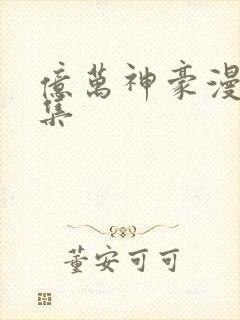 億萬神豪漫
集
董安可可